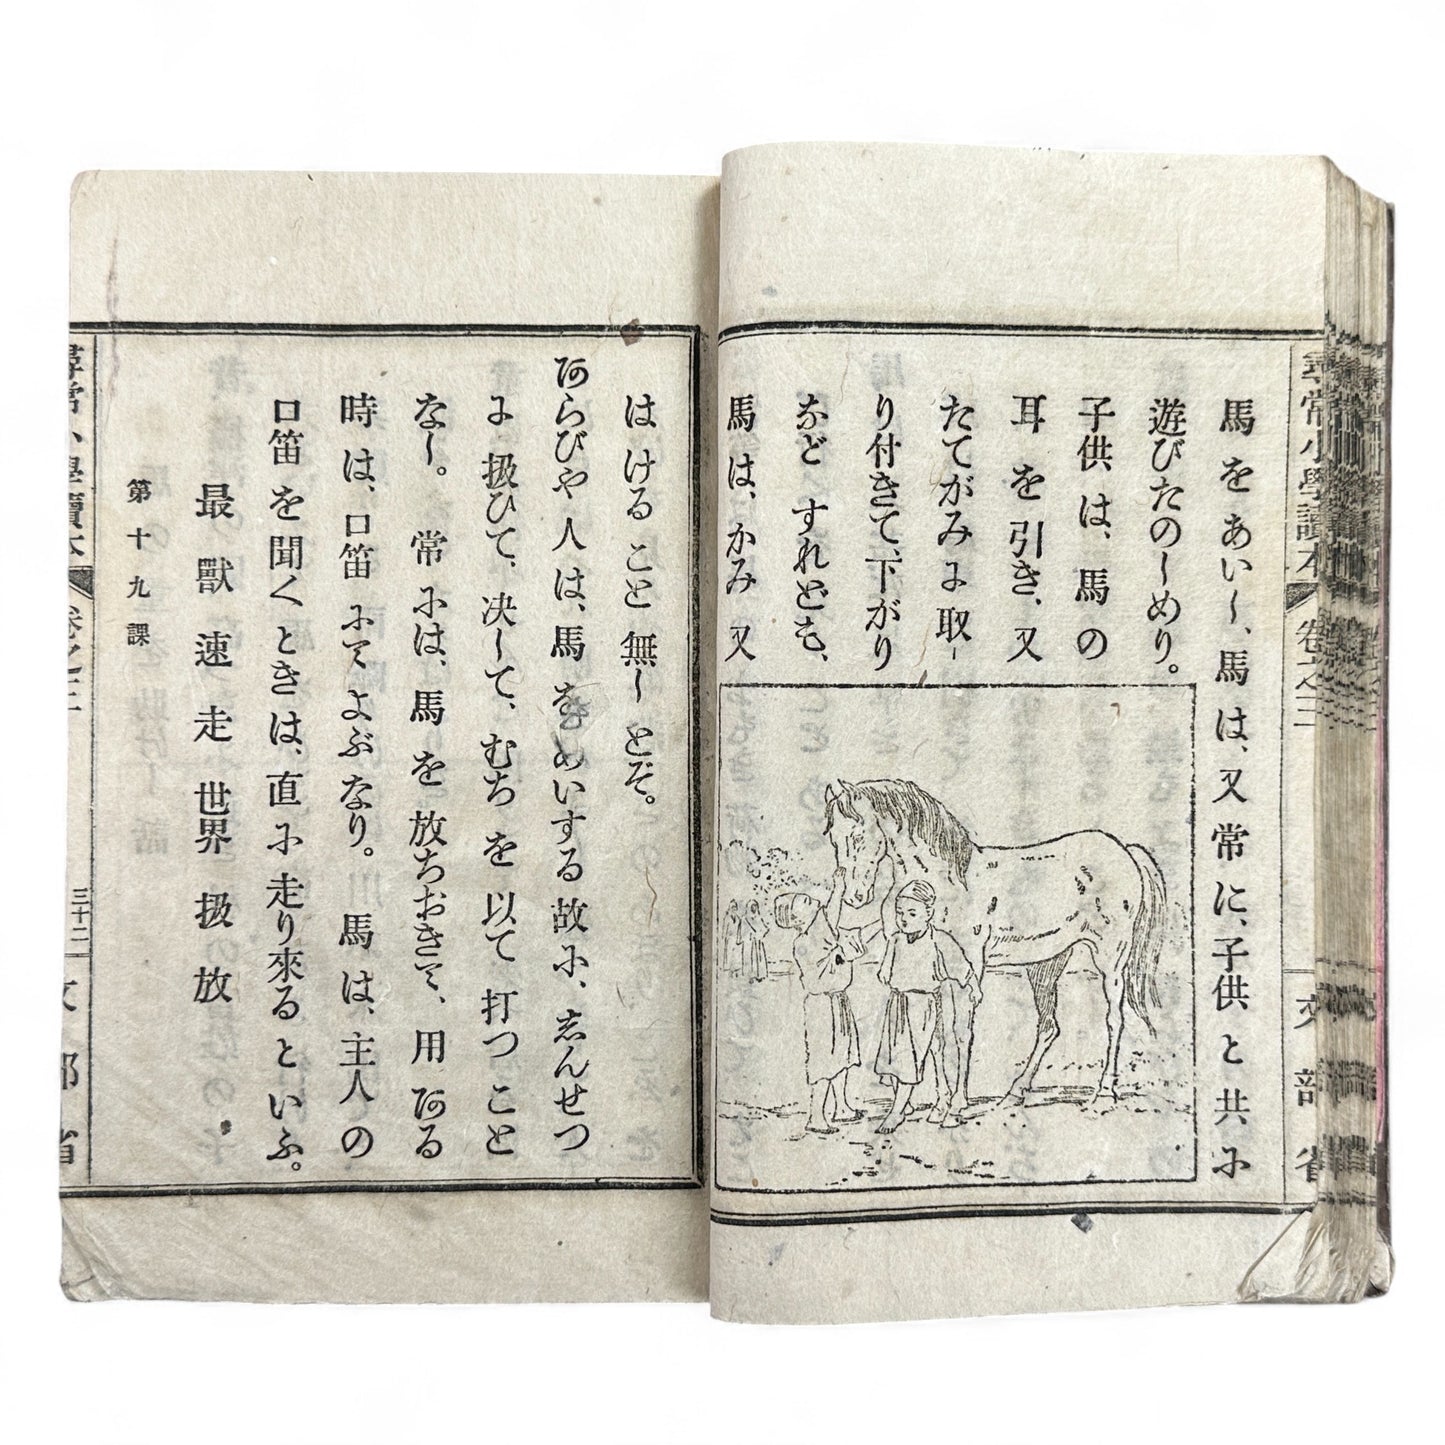 尋常小學讀本
卷之三
文部省
馬をあいし、馬は、又常に、子供と共に
遊びたのしめり。
子供は、馬の
耳を引き、又
たてがみに取
り付きて、下がり
などすれども、
馬は、かみ又
はけること無しとぞ。
あらびや人は、馬をめいする故に、しんせつ
に扱ひて、决して、むちを以て打つこと
なし。常には、馬を放ちおきて、用ある
時は、口笛にてよぶなり。馬は、主人の
口笛を聞くときは、直に走り來るといふ。
最獸速走世界扱放
第十九課
尋常小學讀本
卷之三
三十二
文部省